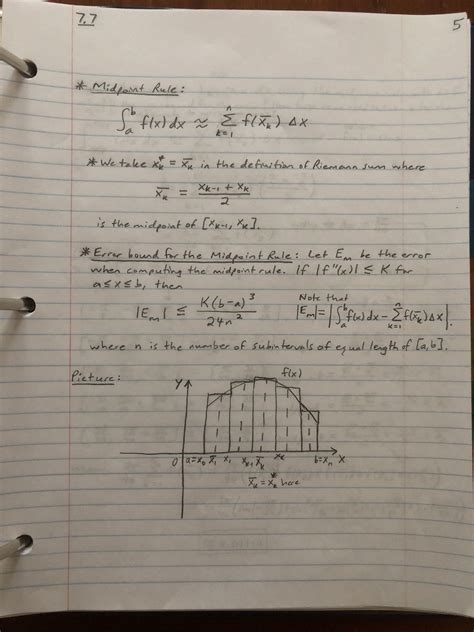 7.7 5
* Midpoint Rule:
∫_a^b f(x) dx ≈ Σ_{k=1}^n f(x̄_k) Δx
* We take x_k^* = x̄_k in the definition of Riemann sum where
x̄_k = (x_{k-1} + x_k)/2
is the midpoint of [x_{k-1}, x_k].
* Error bound for the Midpoint Rule: Let E_m be the error
when computing the midpoint rule. If |f''(x)| ≤ K for
a ≤ x ≤ b, then
Note that
|E_m| ≤ K(b-a)^3/24n^2 |E_m| = |∫_a^b f(x) dx - Σ_{k=1}^n f(x̄_k) Δx|.
where n is the number of subintervals of equal length of [a,b].
Picture:
y f(x)
0 a=x_0 x̄_1 x_1 x_{k-1} x̄_k x_k b=x_n x
x̄_k = x_k^* here